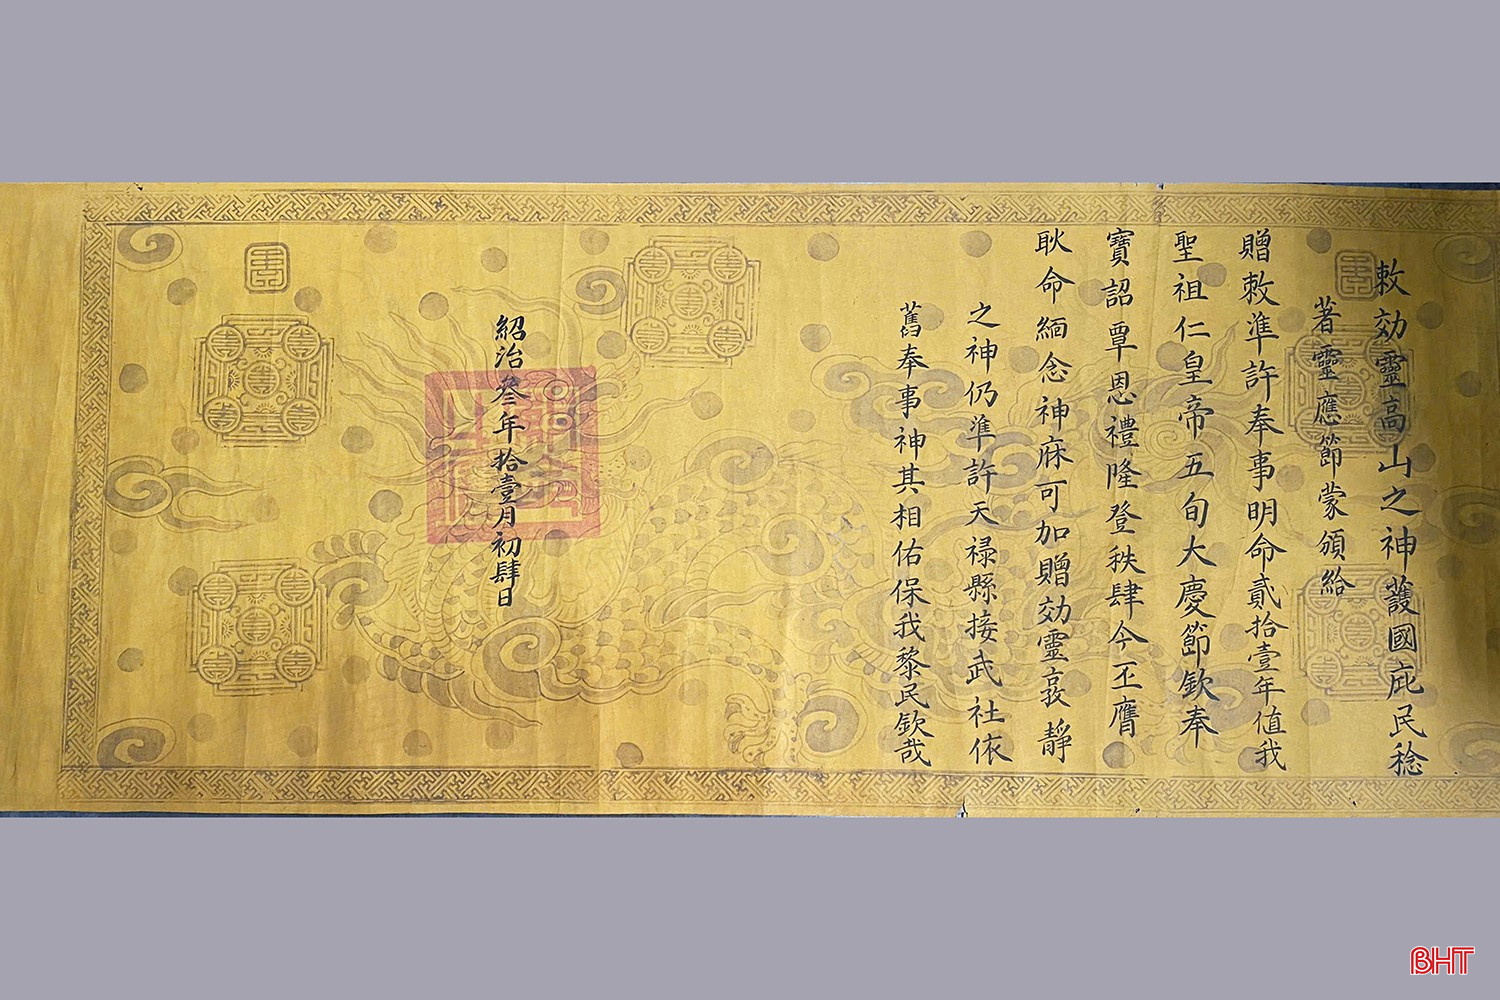 敕効靈高山之神護國庇民稔
著靈應節蒙頒給
贈敕準許奉事明命貳拾壹年值我
聖祖仁皇帝五旬大慶節欽奉
寶詔覃恩禮隆登秩肆今丕膺
耿命緬念神庥可加贈効靈敦靜
之神仍準許天祿縣接武社依
舊奉事神其相佑保我黎民欽哉
紹治叄年拾壹月初肆日
BHT